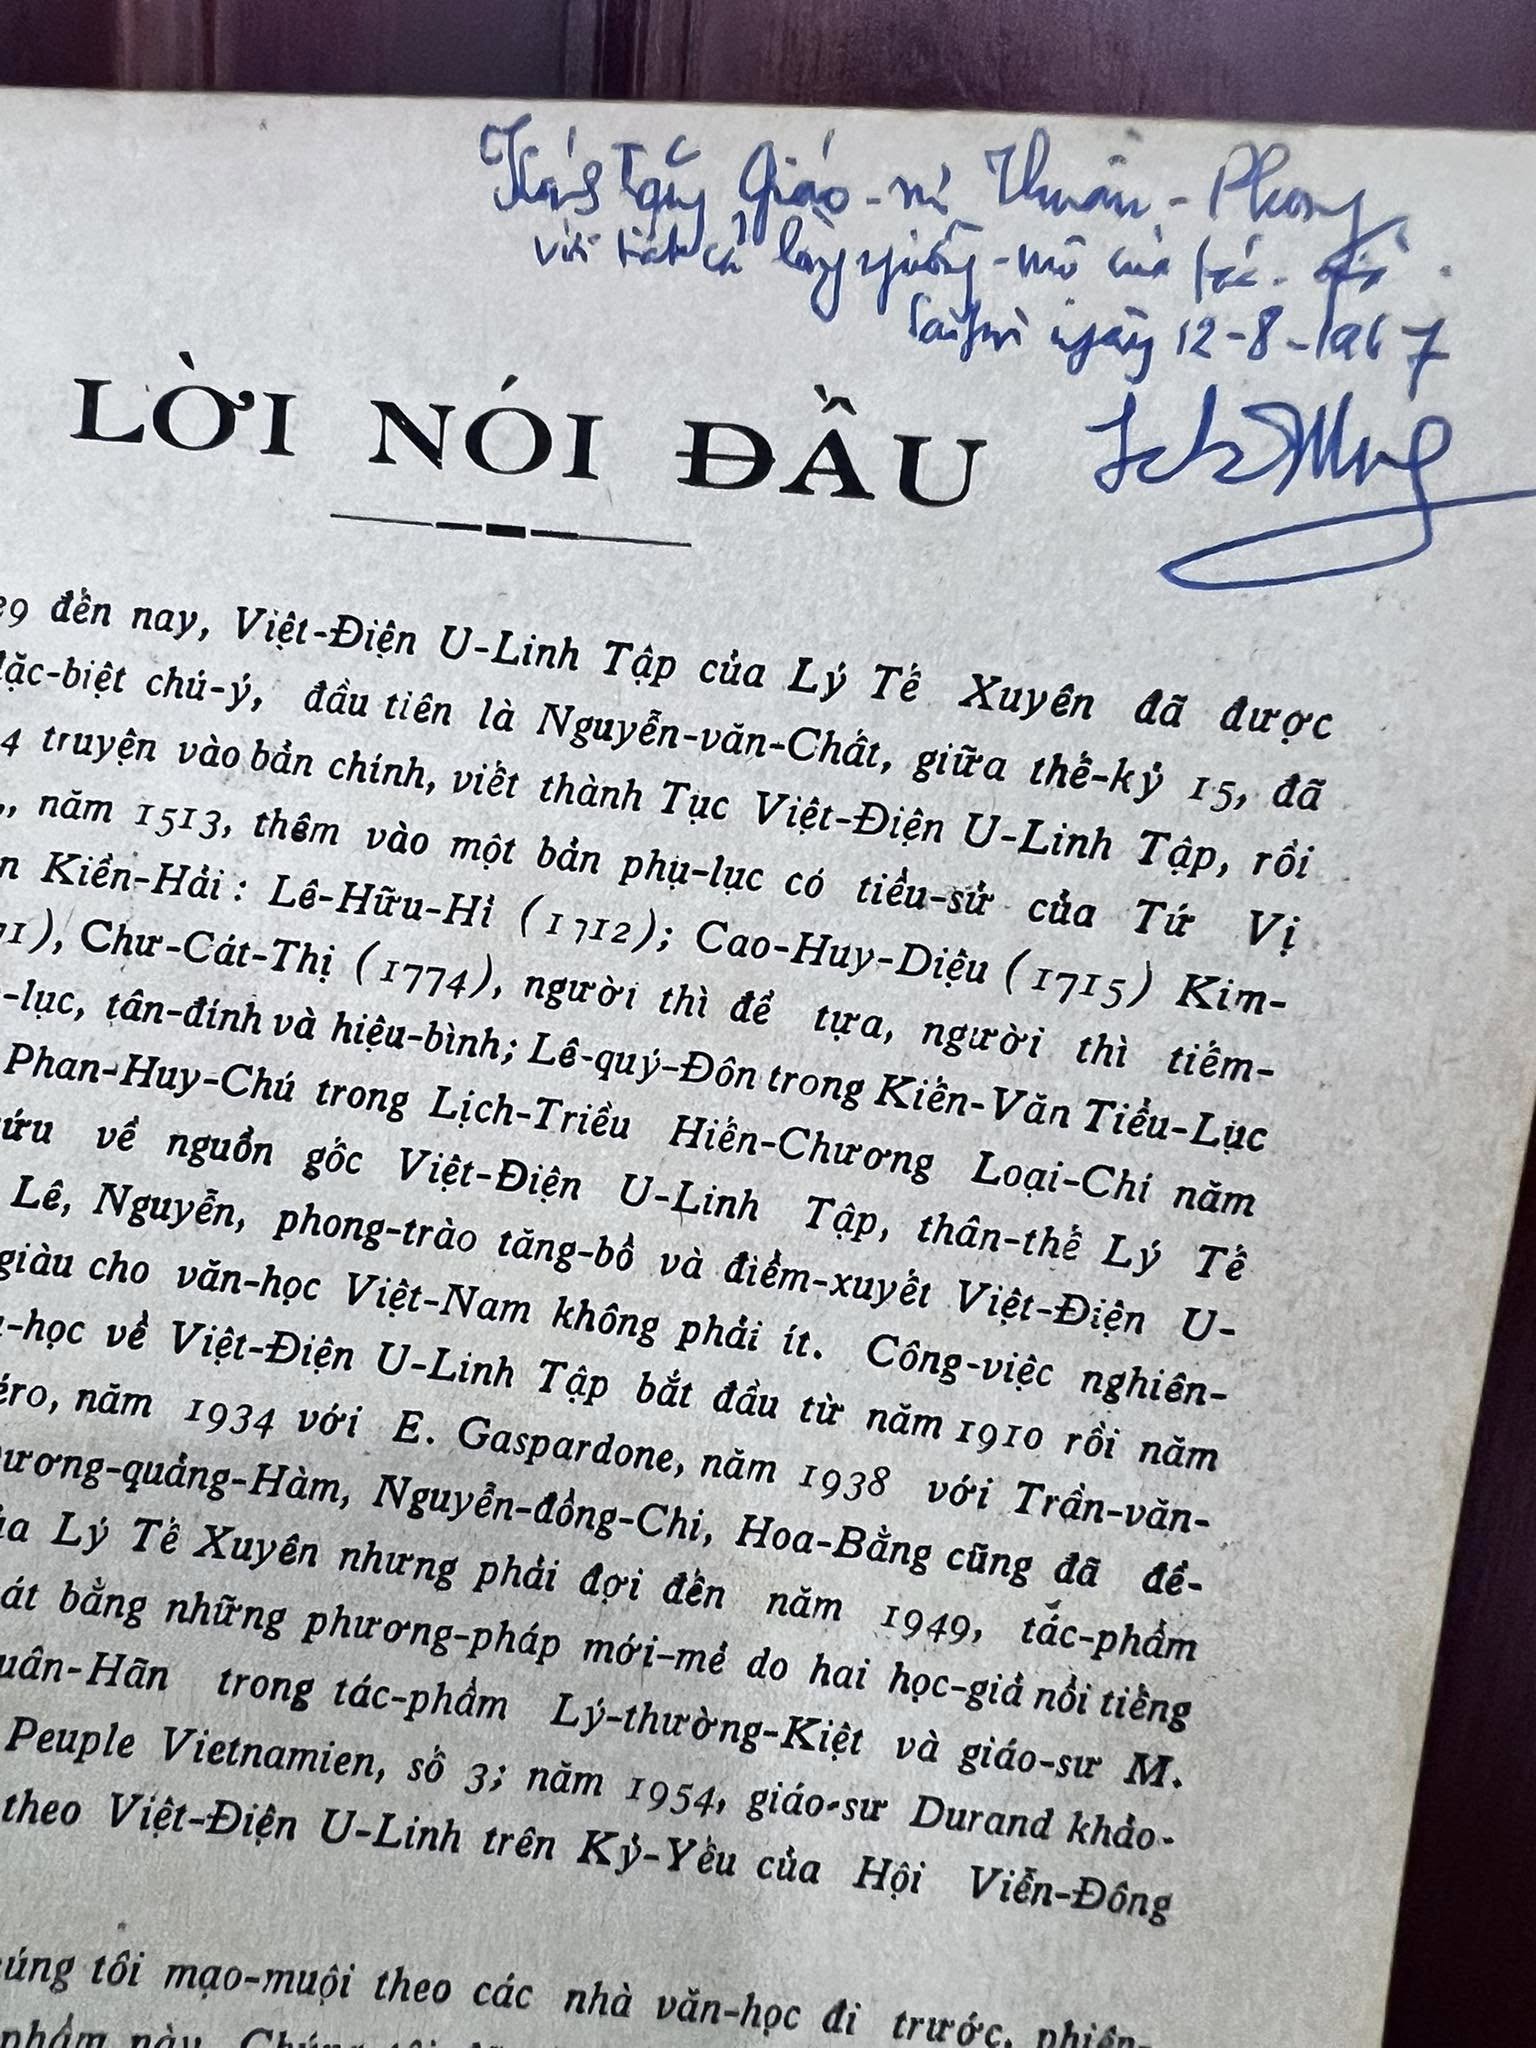 Kính tặng Giáo-sư Thuần-Phong
với tất cả lòng ngưỡng-mộ của tác-giả
Saigon ngày 12-8-1967
LỜI NÓI ĐẦU
29 đến nay, Việt-Điện U-Linh Tập của Lý Tế Xuyên đã được
đặc-biệt chú-ý, đầu tiên là Nguyễn-văn-Chất, giữa thế-kỷ 15, đã
4 truyện vào bản chính, viết thành Tục Việt-Điện U-Linh Tập, rồi
, năm 1513, thêm vào một bản phụ-lục có tiểu-sử của Tứ Vị
n Kiền-Hải : Lê-Hữu-Hỉ (1712); Cao-Huy-Diệu (1715) Kim-
71), Chư-Cát-Thị (1774), người thì đề tựa, người thì tiếm-
-lục, tân-đính và hiệu-bình; Lê-quý-Đôn trong Kiến-Văn Tiểu-Lục
Phan-Huy-Chú trong Lịch-Triều Hiến-Chương Loại-Chí năm
cứu về nguồn gốc Việt-Điện U-Linh Tập, thân-thế Lý Tế
Lê, Nguyễn, phong-trào tăng-bổ và điểm-xuyết Việt-Điện U-
giàu cho văn-học Việt-Nam không phải ít. Công-việc nghiên-
-học về Việt-Điện U-Linh Tập bắt đầu từ năm 1910 rồi năm
éro, năm 1934 với E. Gaspardone, năm 1938 với Trần-văn-
ương-quảng-Hàm, Nguyễn-đồng-Chi, Hoa-Bằng cũng đã đề-
ủa Lý Tế Xuyên nhưng phải đợi đến năm 1949, tác-phẩm
át bằng những phương-pháp mới-mẻ do hai học-giả nổi tiếng
uân-Hãn trong tác-phẩm Lý-thường-Kiệt và giáo-sư M.
Peuple Vietnamien, số 3; năm 1954, giáo-sư Durand khảo-
theo Việt-Điện U-Linh trên Kỷ-Yếu của Hội Viễn-Đông
úng tôi mạo-muội theo các nhà văn-học đi trước, phiên-
phẩm này. Chúng tôi